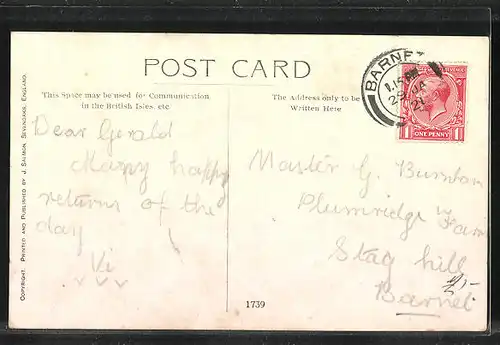 POST CARD
This Space may be used for Communication
in the British Isles, etc
The Address only to be
Written Here
BARNET
1.15 PM
29 JA
21
POSTAGE REVENUE
ONE PENNY
Dear Gerald
Many happy
returns of the
day
Vi
v v v
Master G. Burnham
Plumridge Farm
Stag hill
Barnet
1739
COPYRIGHT. PRINTED AND PUBLISHED BY J. SALMON, SEVENOAKS, ENGLAND.